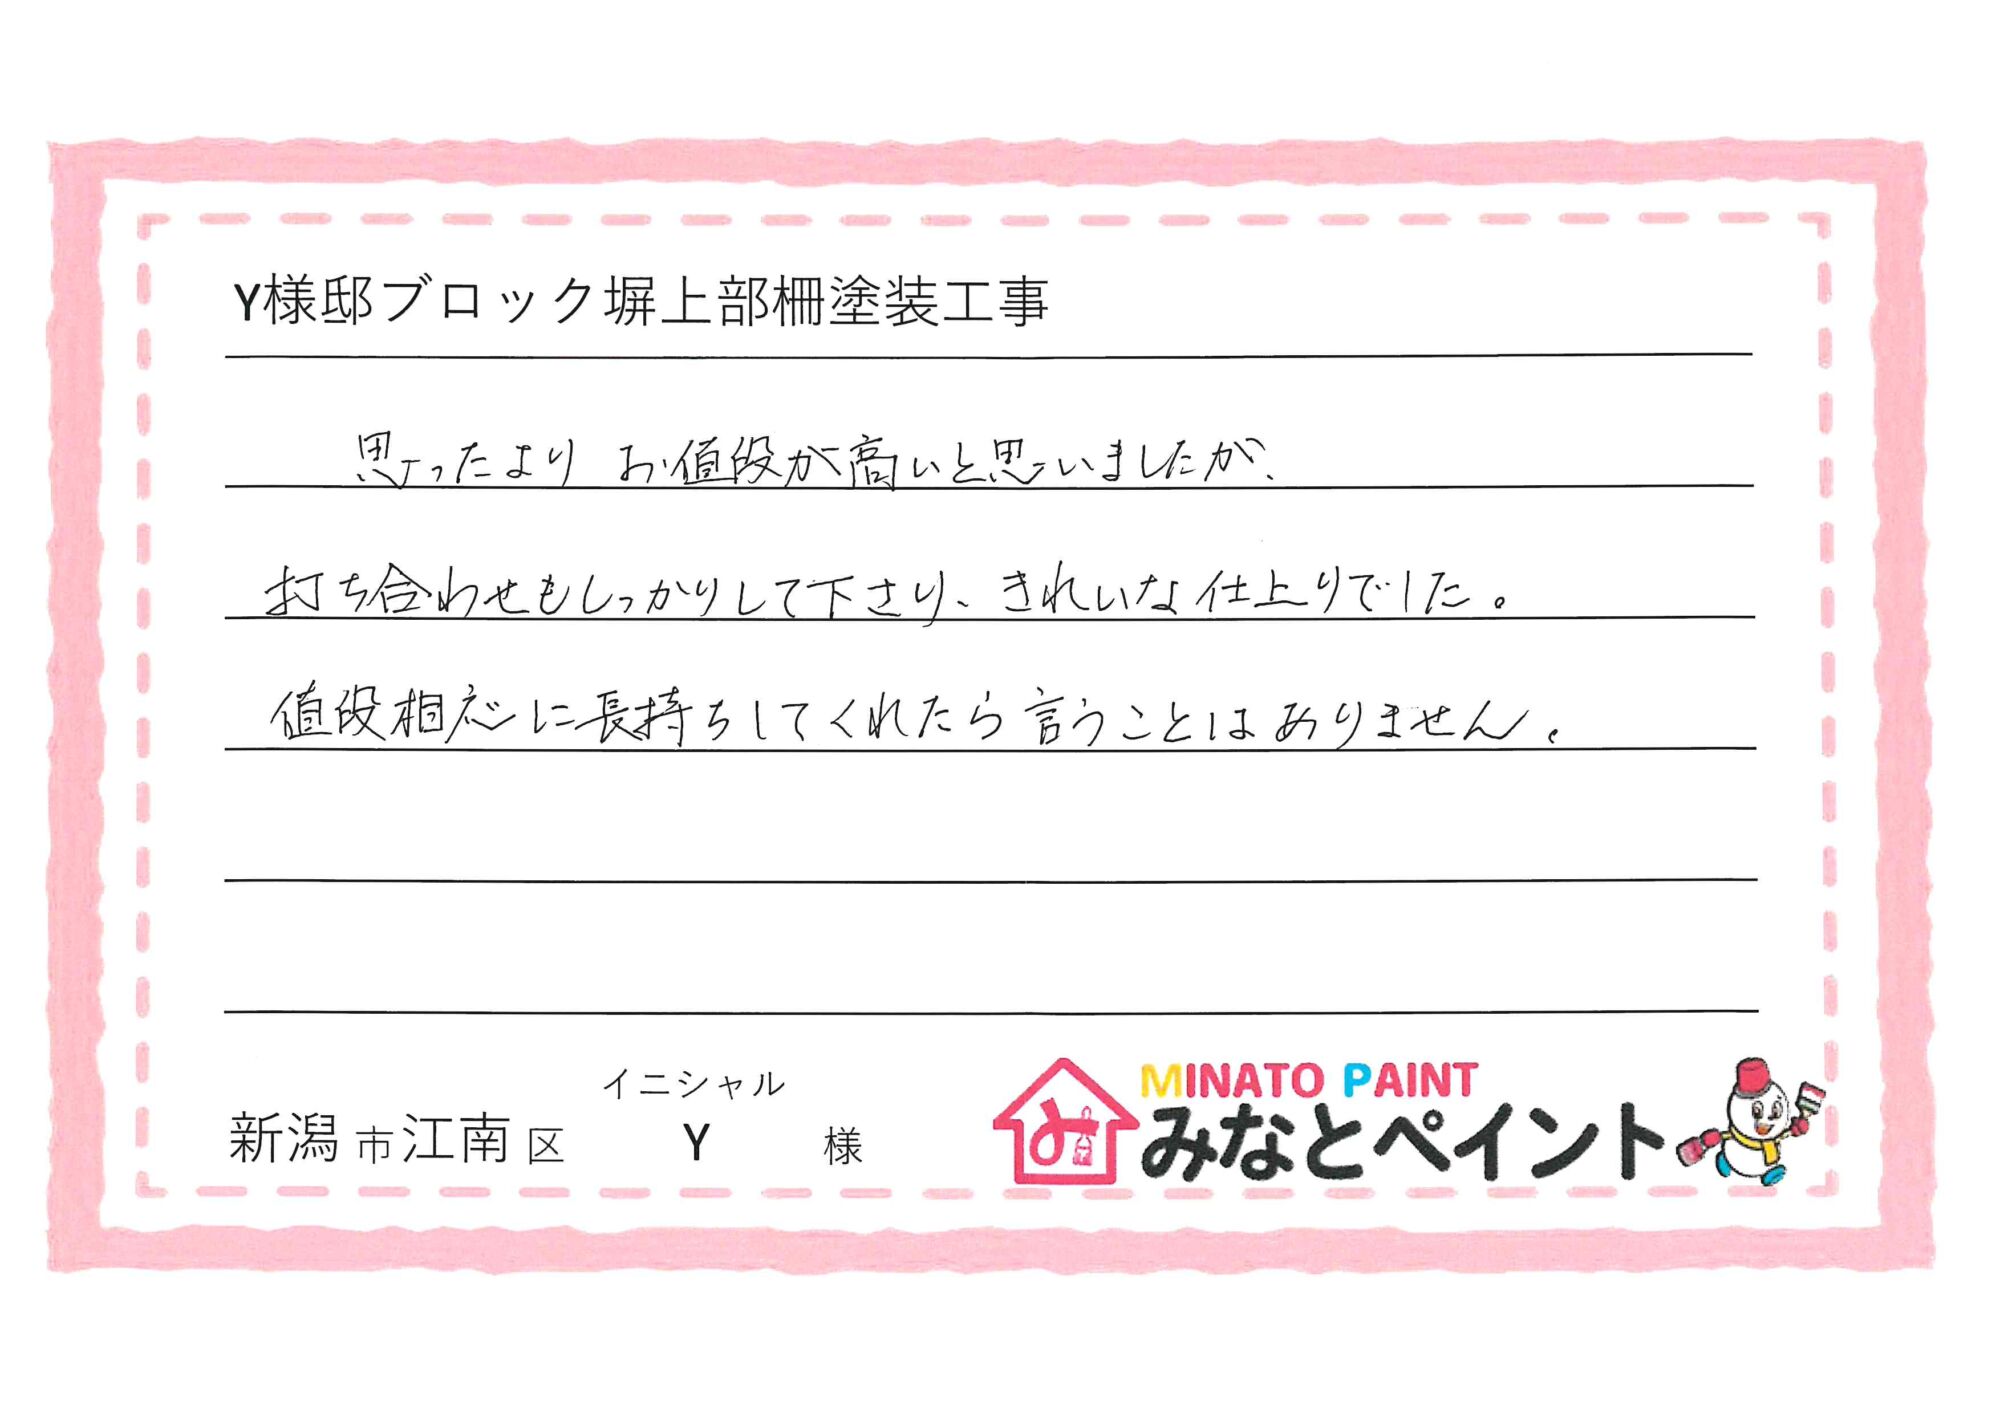 Y様邸ブロック塀上部柵塗装工事
思ったより お値段が高いと思いましたが、
打ち合わせもしっかりして下さり、きれいな仕上りでした。
値段相応に長持ちしてくれたら言うことはありません。
イニシャル
新潟市江南区 Y 様
MINATO PAINT
み
みなとペイント